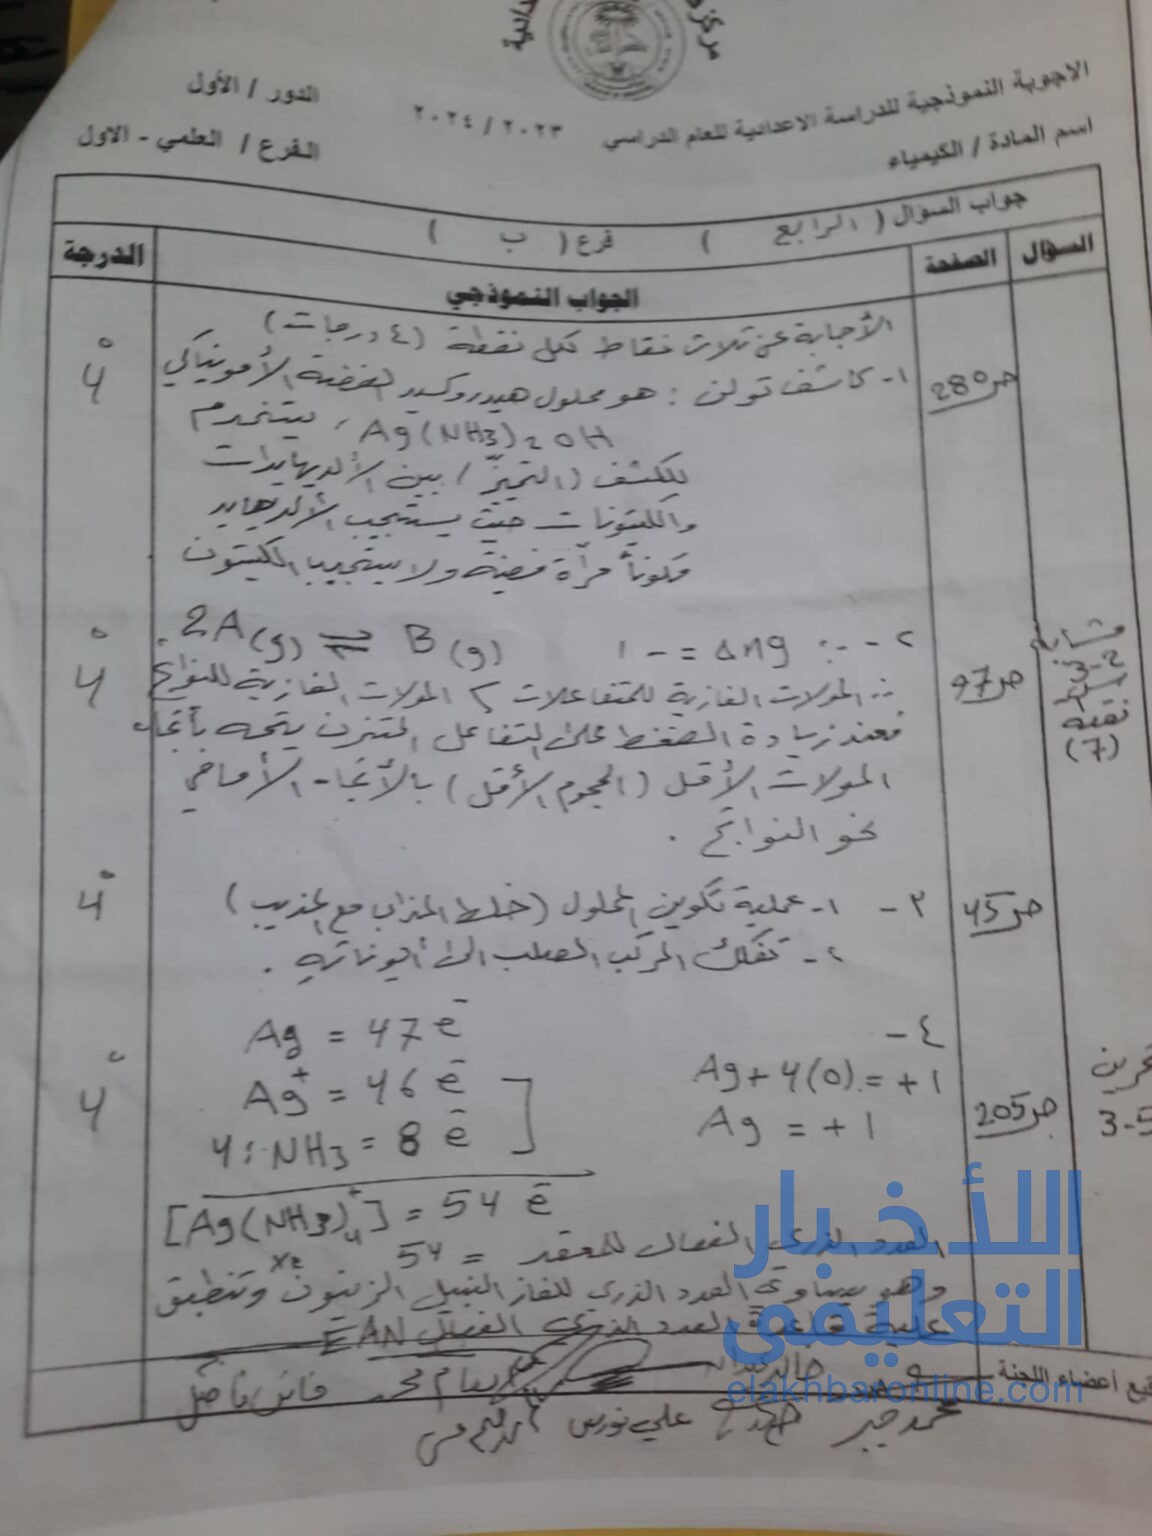 مركز
الاجوبة النموذجية للدراسة الاعدادية للعام الدراسي ٢٠٢٣ / ٢٠٢٤
الدور / الأول
اسم المادة / الكيمياء
الفرع / العلمي - الاول
جواب السؤال ( الرابع ) فرع ( ب )
السؤال الصفحة الجواب النموذجي الدرجة
الأجابة عن ثلاث نقاط لكل نقطة (٤ درجات)
١- كاشف تولن : هو محلول هيدروكسيد الفضة الأمونياكي ص280 4
Ag(NH3)2OH ، يستخدم
للكشف (التميز) بين الألديهايدات
والكيتونات حيث يستجيب الألديهايد
مكوناً مرآة فضة ولا يستجيب الكيتون
٢- ∵ Δng = -1 2A(g) ⇌ B(g)
∵ المولات الغازية للمتفاعلات > المولات الغازية للنواتج ص97 4
فعند زيادة الضغط على التفاعل المتزن يتجه بأتجاه
المولات الأقل (الحجوم الأقل) بالأتجاه الأمامي
نحو النواتج .
3-2
نقطة
(7)
٣- ١- عملية تكوين المحلول (خلط المذاب مع المذيب) ص45 4
٢- تفكك المركب الصلب الى أيوناته .
٤- Ag = 47 e-
Ag + 4(0) = +1 Ag+ = 46 e-
Ag = +1 4:NH3 = 8 e-
تمرين 3-5 ص205 4
[Ag(NH3)4+] = 54 e-
العدد الذري الفعال للمعقد = 54
وهو يساوي العدد الذري للغاز النبيل الزينون Xe وتنطبق
عليه قاعدة العدد الذري الفعال EAN
اعضاء اللجنة
علي نورس
الأخبار
التعليمي
elakhbaronline.com